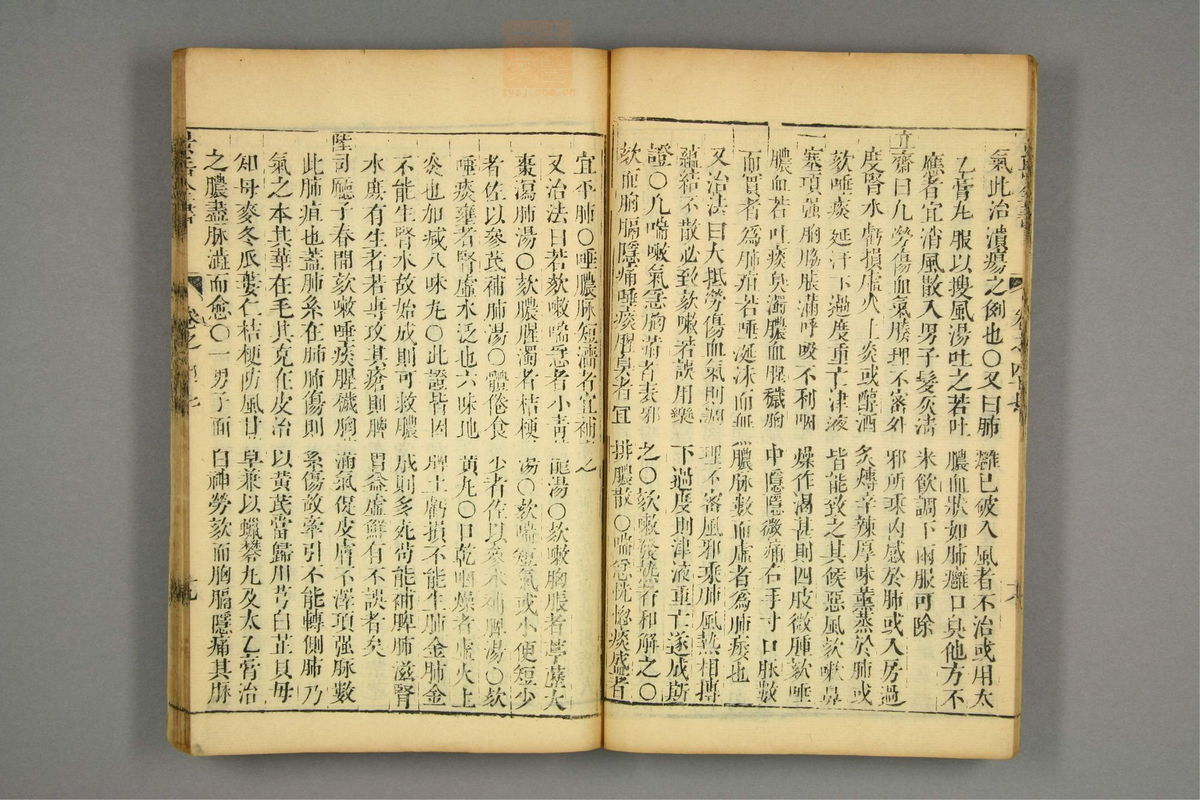 氣此治潰瘍之例也〇又曰肺癰已破入風者不治或用太
乙膏丸服以搜風湯吐之若吐膿血狀如肺癰口臭他方不
應者宜消風散入男子髮灰清米飲調下兩服可除
立齋曰凡勞傷血氣腠理不密外邪所乘內感於肺或入房過
度腎水虧損虛火上炎或醇酒炙煿辛辣厚味薰蒸於肺或
欬唾痰涎汗下過度重亡津液皆能致之其候惡風欬嗽鼻
塞項强胸脇脹滿呼吸不利咽燥作渴甚則四肢微腫欬唾
膿血若吐痰臭濁膿血腥穢胸中隱隱微痛右手寸口脈數
而實者爲肺疽若唾涎沫而無膿脈數而虛者爲肺痿也
又治法曰大抵勞傷血氣則腠理不密風邪乘肺風熱相搏
蘊結不散必致欬嗽若誤用藥下過度則津液重亡遂成斯
證〇凡喘嗽氣急胸滿者表邪之〇欬嗽發熱者和解之〇
欬而胸膈隱痛唾痰腥臭者宜排膿散〇喘急恍惚痰盛者
宜平肺〇唾膿脈短濇者宜補之
又治法曰若欬嗽喘急者小青龍湯〇欬嗽胸脹者葶藶大
棗瀉肺湯〇欬膿腥濁者桔梗湯〇欬喘短氣或小便短少
者佐以參芪補肺湯〇體倦食少者佐以參朮補脾湯〇欬
唾痰壅者腎虛水泛也六味地黃丸〇口乾咽燥者虛火上
炎也加減八味丸〇此證皆因脾土虧損不能生肺金肺金
不能生腎水故始成則可救膿成則多死苟能補脾肺滋腎
水庶有生者若專攻其瘡則脾胃益虛鮮有不誤者矣
陞司廳子春間欬嗽唾痰腥穢胸滿氣促皮膚不澤項强脈數
此肺疽也蓋肺系在肺肺傷則系傷故牽引不能轉側肺乃
氣之本其華在毛其充在皮治以黃芪當歸川芎白芷貝母
知母麥冬瓜蔞仁桔梗防風甘草兼以蠟礬丸及太乙膏治
之膿盡脈濇而愈〇一男子面白神勞欬而胸膈隱痛其脈